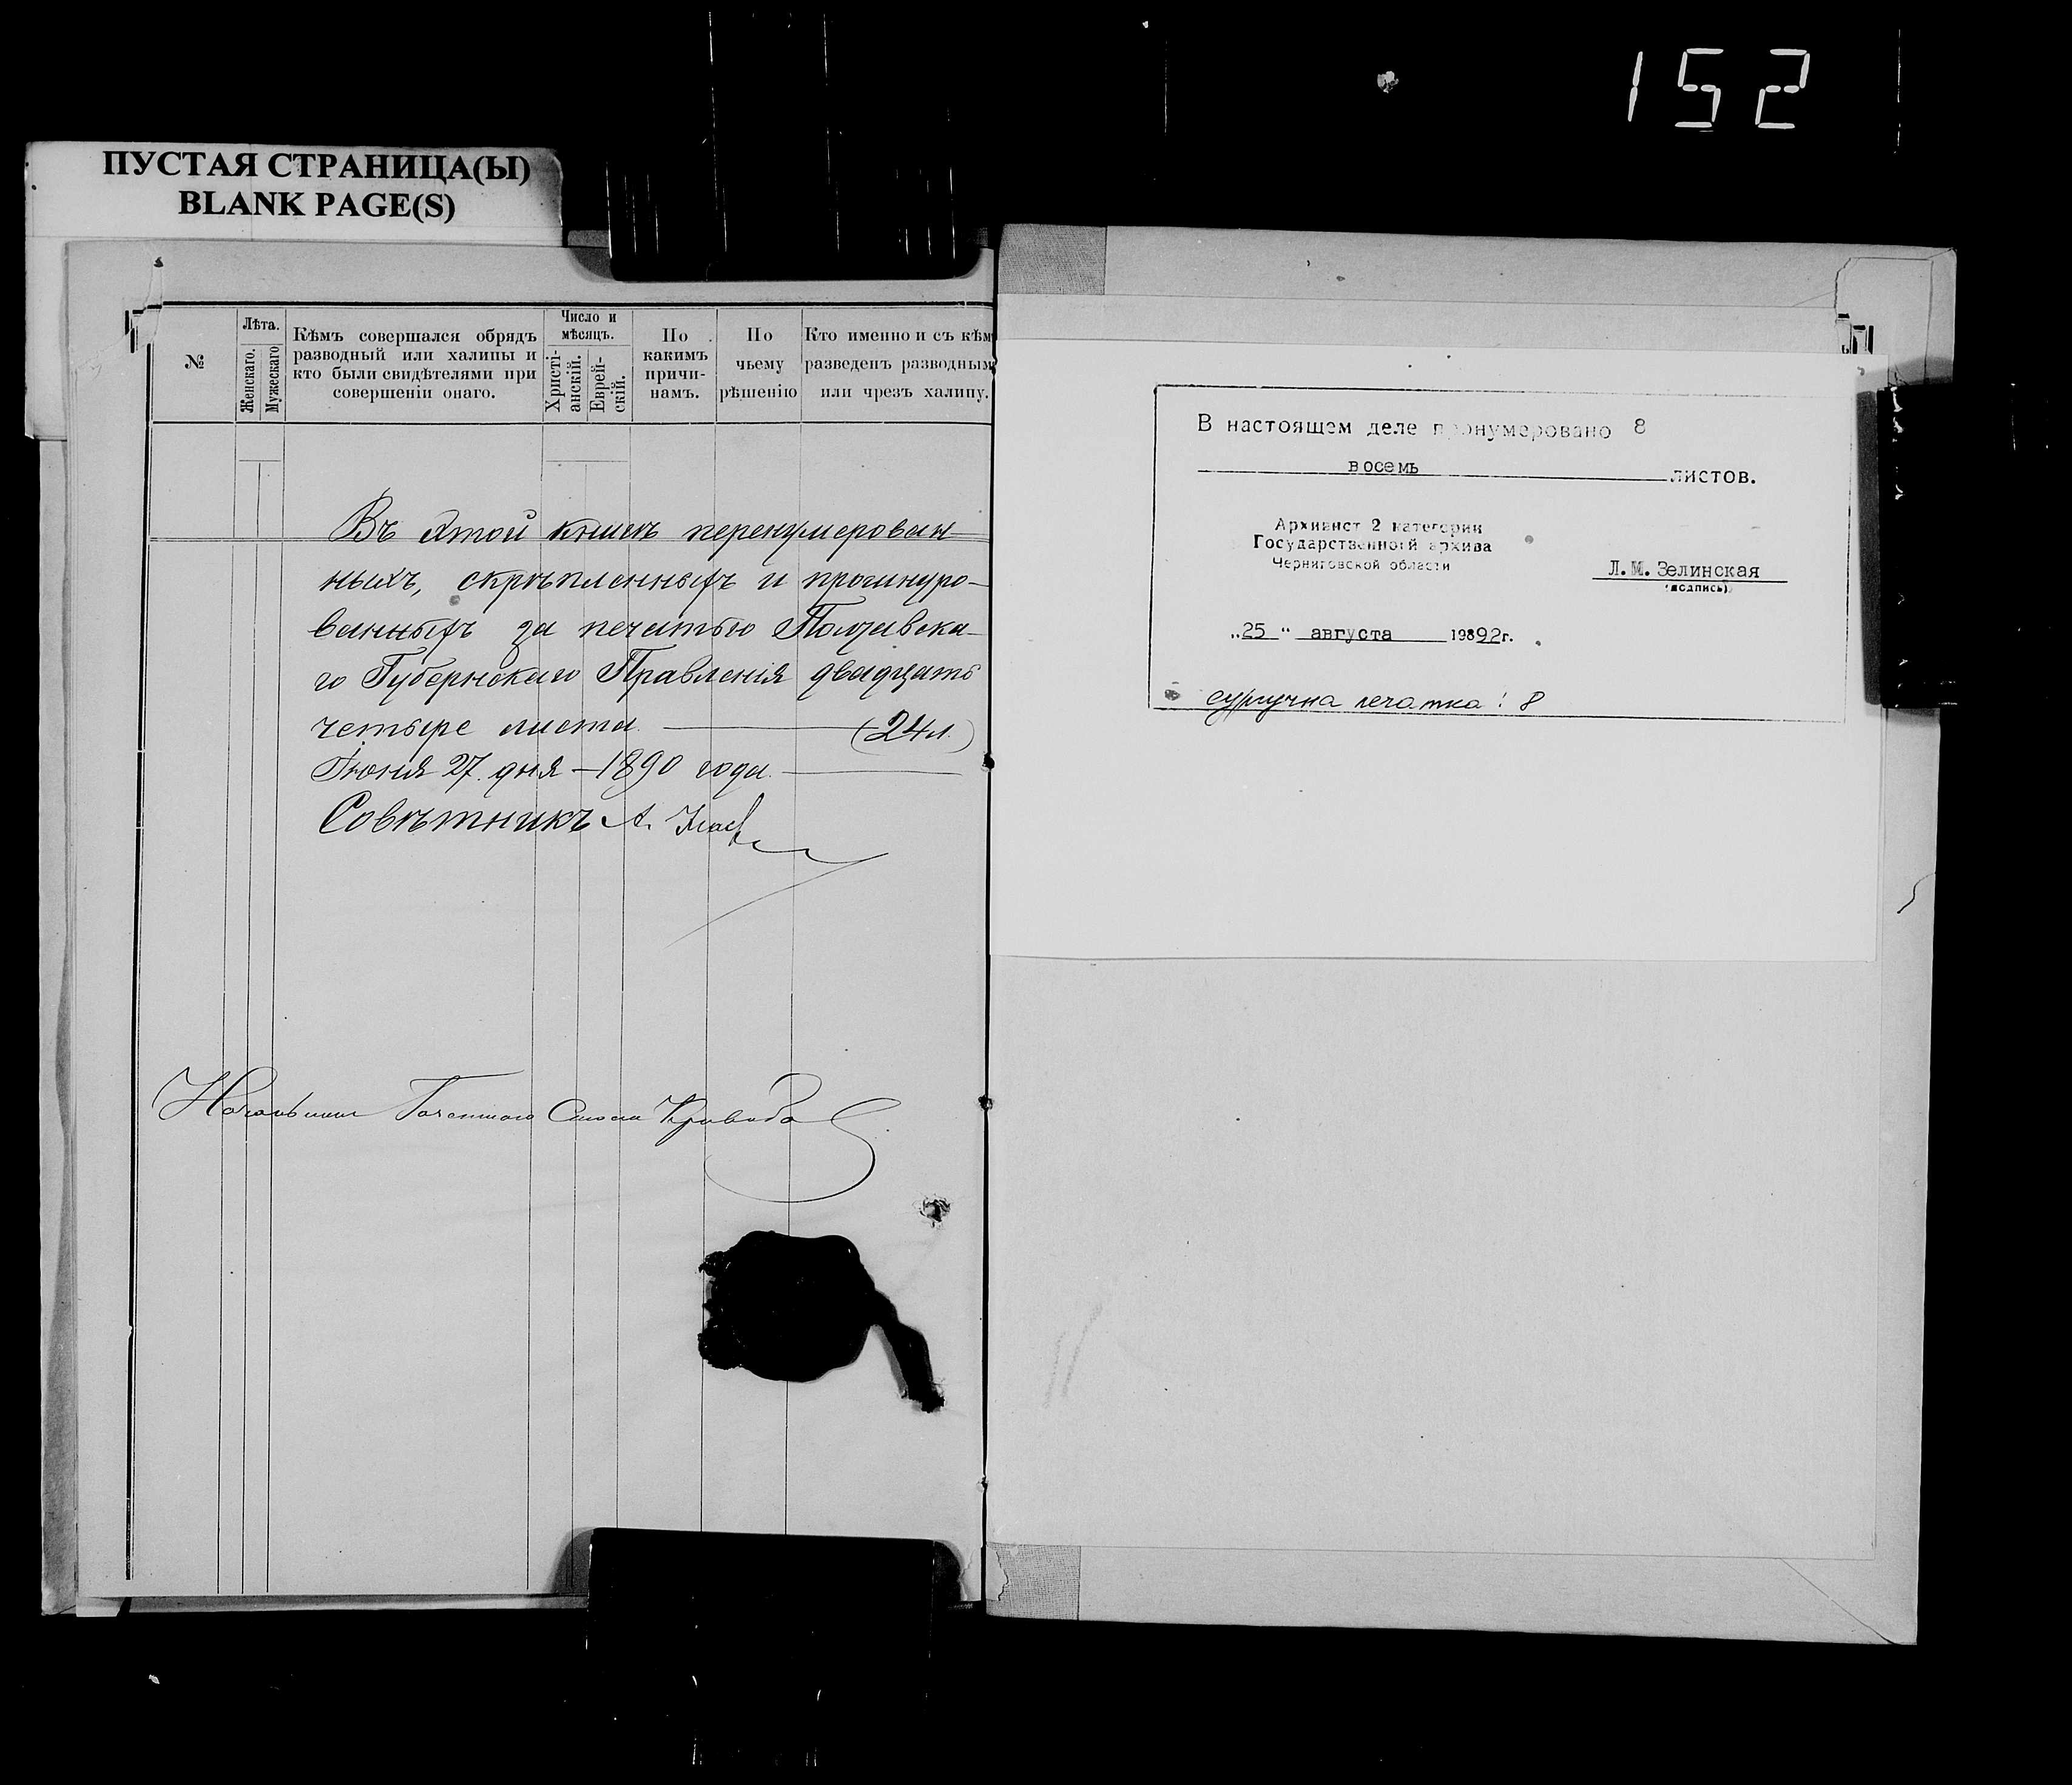 152
ПУСТАЯ СТРАНИЦА(Ы)
BLANK PAGE(S)
№
Лѣта.
Женскаго.
Мужескаго
Кѣмъ совершался обрядъ
разводный или халицы и
кто были свидѣтелями при
совершеніи онаго.
Число и
мѣсяцъ.
Христі-
анскій.
Еврей-
скій.
По
какимъ
причи-
намъ.
По
чьему
рѣшенію
Кто именно и съ кѣм
разведенъ разводным
или чрезъ халицу.
Въ этой книгѣ перенумерован-
ныхъ, скрѣпленныхъ и прошнуро-
ванныхъ за печатью Полтавска-
го Губернскаго Правленія двадцать
четыре листа (24 л.)
Іюня 27 дня – 1890 года.
Совѣтникъ А.
В настоящем деле пронумеровано 8
восемь листов.
Архивист 2 категории
Государственной архива
Черниговской области
Л.М. Зелинская
(подпись)
„25 " августа 19892г.
сургучна печатка: 8